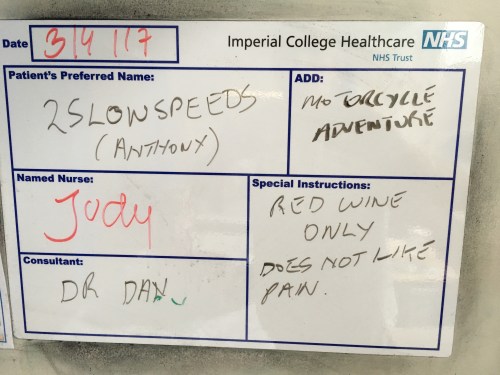 Date 3/4/17
Imperial College Healthcare NHS
NHS Trust
Patient's Preferred Name:
2SLOWSPEEDS
(ANTHONY)
ADD:
MOTORCYCLE
ADVENTURE
Named Nurse:
Judy
Special Instructions:
RED WINE
ONLY
DOES NOT LIKE
PAIN.
Consultant:
DR DAN